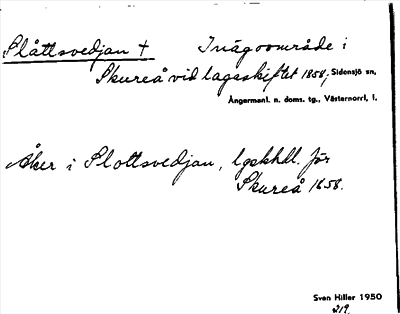 Slåttsvedjan † Inägoområde i
Skureå vid lagaskiftet 1858, Sidensjö sn,
Ångermanl. n. doms. tg., Västernorrl. l.
Åker i Slottsvedjan, lgskhdl. för
Skureå 1658.
Sven Hiller 1950
219.